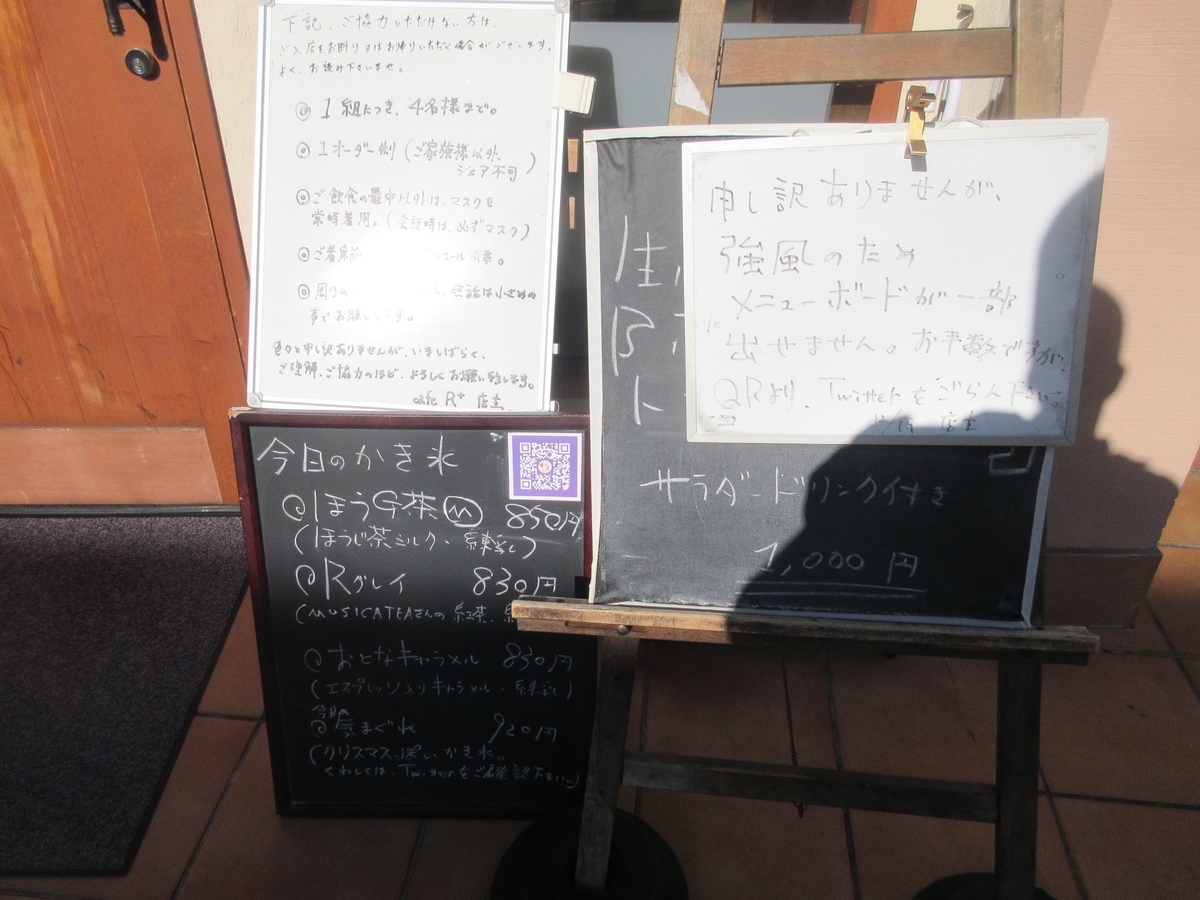 下記、ご協力いただけない方は、
ご入店をお断り又はお帰りいただく場合がございます。
よく、お読み下さいませ。
◎1組につき、4名様まで。
◎1オーダー制(ご家族様以外、
シェア不可)
◎ご飲食の最中以外は、マスクを
常時着用。(会話時は、必ずマスク)
◎ご着席前 アルコール消毒。
◎周りの 会話は小さめの
声でお願いします。
色々と申し訳ありませんが、いましばらく、
ご理解、ご協力のほど、よろしくお願い致します。
cafe R+ 店主
今日のかき氷
◎ほうG茶M 850円
(ほうじ茶ミルク・練乳)
◎Rグレイ 830円
(MUSICATEAさんの紅茶・
◎おとなキャラメル 830円
(エスプレッソ入りキャラメル・練乳)
今日の
◎気まぐれ 920円
(クリスマスっぽいかき氷。
くわしくは、Twitterをご確認下さい。)
申し訳ありませんが、
強風のため
メニューボードが一部
出せません。お手数ですが、
QRより、Twitterをごらん下さい。
店主
生
ト
サラダ・ドリンク付き
1,000円